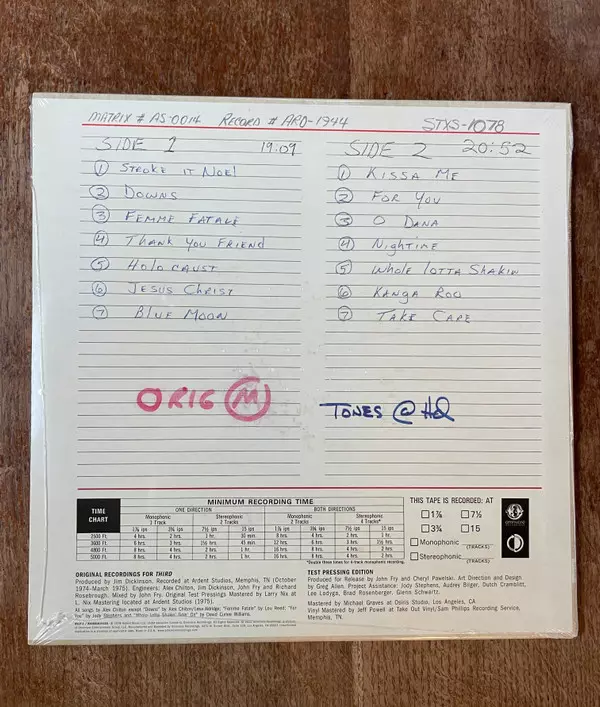 MATRIX # AS-0014 RECORD # ARD-1944 STXS-1078
SIDE 1 19:09
① STROKE IT NOEL
② DOWNS
③ FEMME FATALE
④ THANK YOU FRIEND
⑤ HOLOCAUST
⑥ JESUS CHRIST
⑦ BLUE MOON
SIDE 2 20:52
① KISSA ME
② FOR YOU
③ O DANA
④ NIGHTIME
⑤ WHOLE LOTTA SHAKIN
⑥ KANGA ROO
⑦ TAKE CARE
ORIG M
TONES @ Hd
TIME CHART
MINIMUM RECORDING TIME
ONE DIRECTION BOTH DIRECTIONS
Monophonic 1 Track Stereophonic 2 Tracks Monophonic 2 Tracks Stereophonic 4 Tracks*
1⅞ ips 3¾ ips 7½ ips 15 ips 1⅞ ips 3¾ ips 7½ ips 15 ips
2500 Ft. 4 hrs. 2 hrs. 1 hr. 30 min. 8 hrs. 4 hrs. 2 hrs. 1 hr.
3600 Ft. 6 hrs. 3 hrs. 1½ hrs. 45 min. 12 hrs. 6 hrs. 3 hrs. 1½ hrs.
4800 Ft. 8 hrs. 4 hrs. 2 hrs. 1 hr. 16 hrs. 8 hrs. 4 hrs. 2 hrs.
5000 Ft. 8 hrs. 4 hrs. 2 hrs. 1 hr. 16 hrs. 8 hrs. 4 hrs. 2 hrs.
*Double these times for 4-track monophonic recording.
THIS TAPE IS RECORDED: AT
☐ 1⅞ ☐ 7½
☐ 3¾ ☐ 15
☐ Monophonic (TRACKS)
☐ Stereophonic (TRACKS)
ORIGINAL RECORDINGS FOR THIRD
Produced by Jim Dickinson. Recorded at Ardent Studios, Memphis, TN (October
1974–March 1975). Engineers: Alex Chilton, Jim Dickinson, John Fry and Richard
Rosebrough. Mixed by John Fry. Original Test Pressings Mastered by Larry Nix at
L. Nix Mastering located at Ardent Studios (1975).
All songs by Alex Chilton except "Downs" by Alex Chilton/Lesa Aldridge, "Femme Fatale" by Lou Reed, "For
You" by Jody Stephens and "Whole Lotta Shakin' Goin' On" by David Curlee Williams.
TEST PRESSING EDITION
Produced for Release by John Fry and Cheryl Pawelski. Art Direction and Design
by Greg Allen. Project Assistance: Jody Stephens, Audrey Bilger, Dutch Cramblitt,
Lee Lodyga, Brad Rosenberger, Glenn Schwartz.
Mastered by Michael Graves at Osiris Studio, Los Angeles, CA
Vinyl Mastered by Jeff Powell at Take Out Vinyl/Sam Phillips Recording Service,
Memphis, TN.